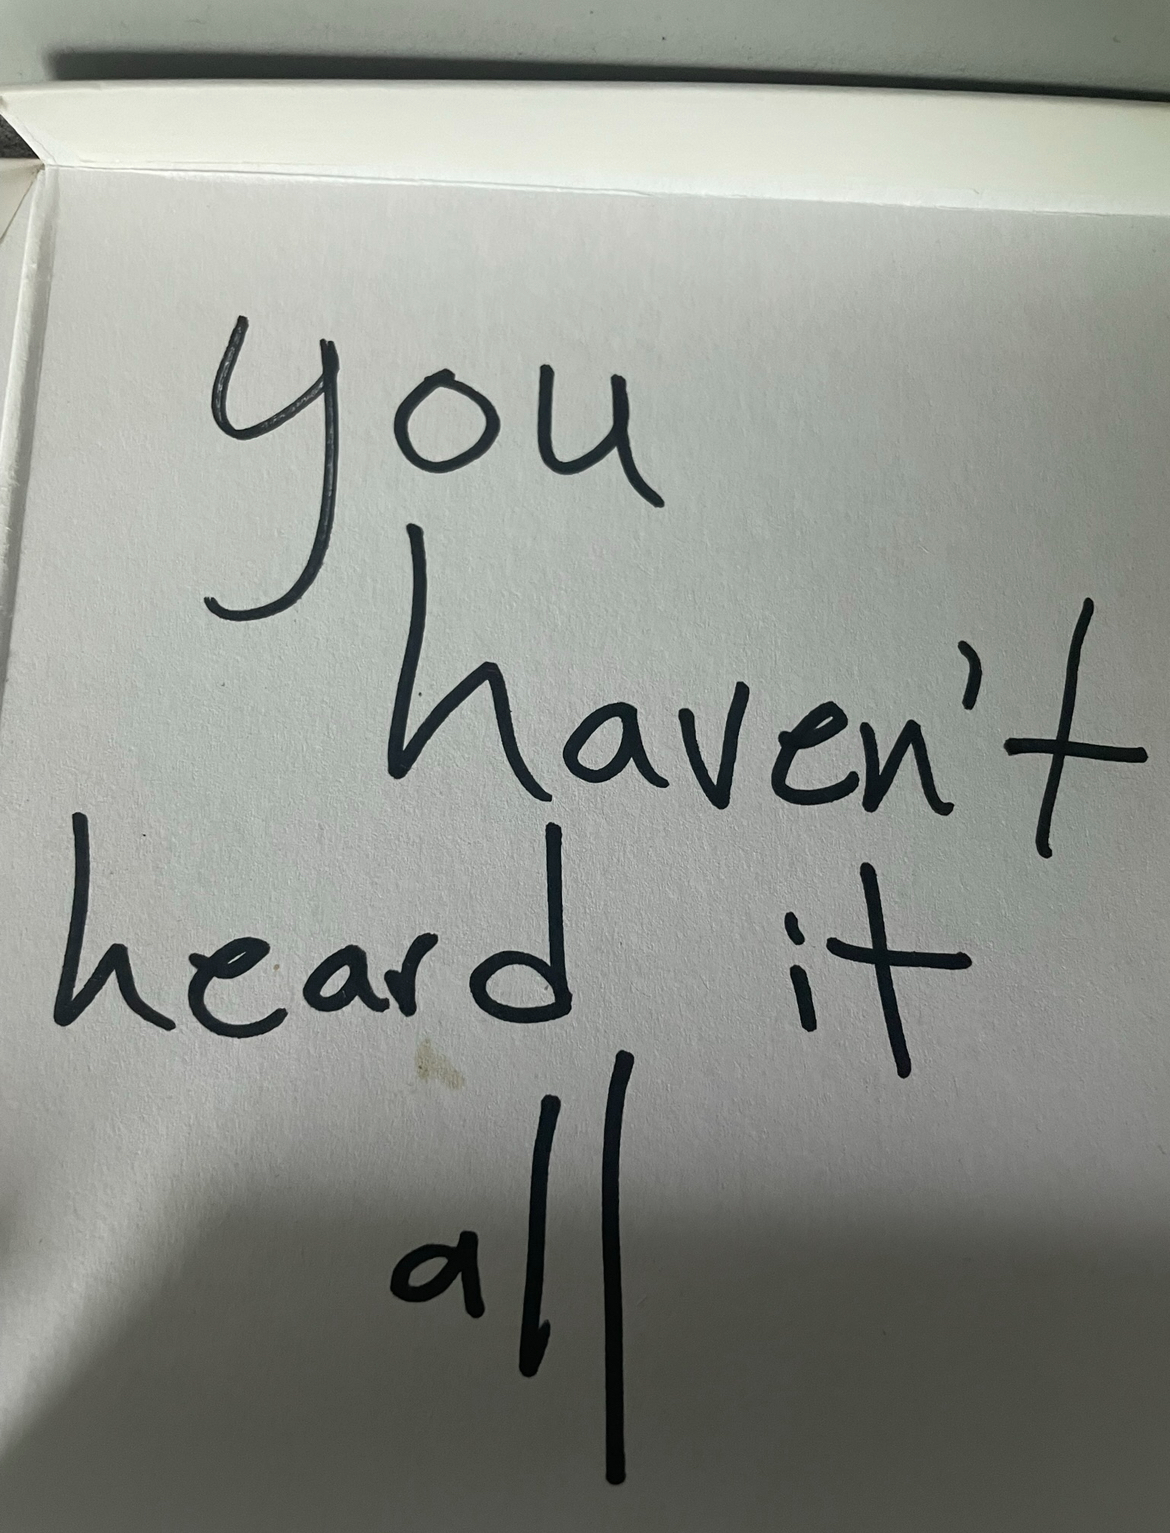 you
haven't
heard it
all